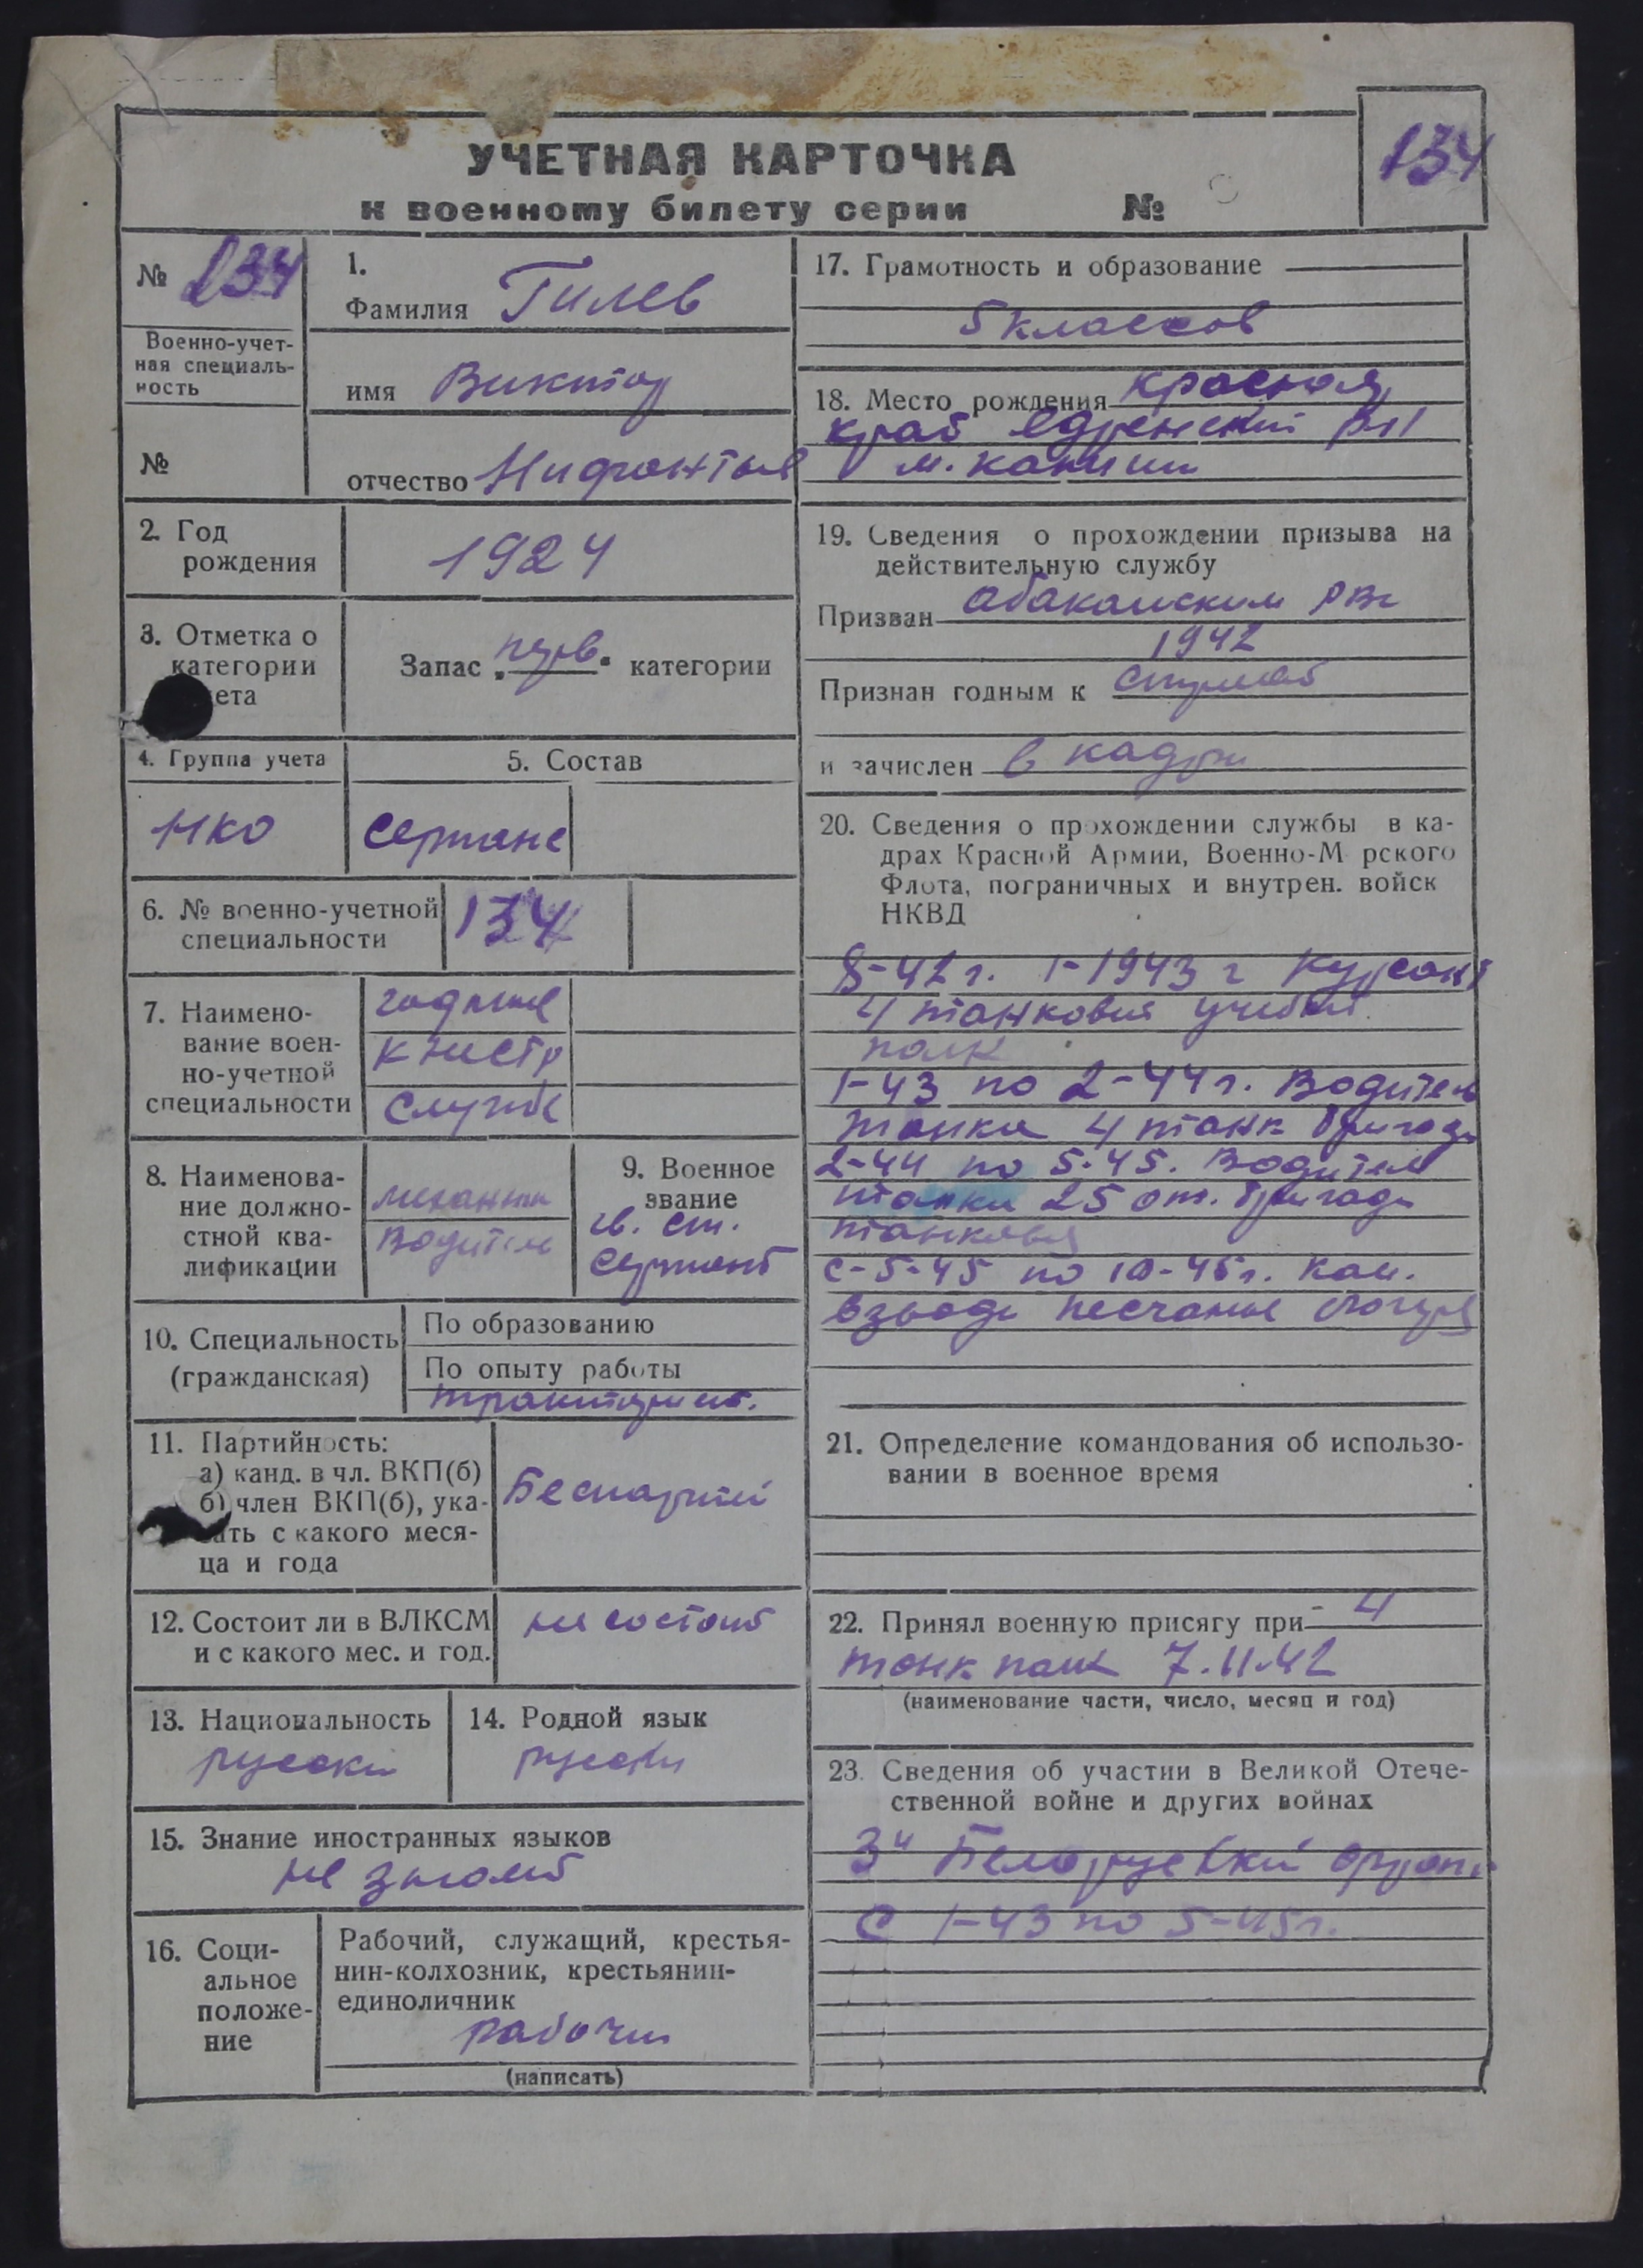 134
УЧЕТНАЯ КАРТОЧКА
к военному билету серии №
№ 134
Военно-учет-
ная специаль-
ность
№
1.
Фамилия Гилев
имя Виктор
отчество Нифонтов
2. Год
рождения
1924
3. Отметка о
категории
ета
Запас перв. категории
4. Группа учета
НКО
5. Состав
сержанс
6. № военно-учетной
специальности
134
7. Наимено-
вание воен-
но-учетной
специальности
годные
к нестр
службе
8. Наименова-
ние должно-
стной ква-
лификации
механик
водитель
9. Военное
звание
гв. ст.
сержант
10. Специальность
(гражданская)
По образованию
По опыту работы
тракторист.
11. Партийность:
а) канд. в чл. ВКП(б)
б) член ВКП(б), ука-
ать с какого меся-
ца и года
Беспартий
12. Состоит ли в ВЛКСМ
и с какого мес. и год.
не состоит
13. Национальность
русский
14. Родной язык
русский
15. Знание иностранных языков
не знает
16. Соци-
альное
положе-
ние
Рабочий, служащий, крестья-
нин-колхозник, крестьянин-
единоличник
рабочий
(написать)
17. Грамотность и образование
5 классов
18. Место рождения красноя
край
19. Сведения о прохождении призыва на
действительную службу
Призван абаканским РВк
1942
Признан годным к строевой
и зачислен в кадры
20. Сведения о прохождении службы в ка-
драх Красной Армии, Военно-М рского
Флота, пограничных и внутрен. войск
НКВД
8-42 г. 1-1943 г курсант
4 танковый учебный
полк
1-43 по 2-44 г. Водитель
танка 4 танк бригады
2-44 по 5-45. Водитель
танка 25 от. бригады
танковая
с-5-45 по 10-45 г. ком.
взвода
21. Определение командования об использо-
вании в военное время
22. Принял военную присягу при 4
танк полк 7.11.42
(наименование части, число, месяц и год)
23. Сведения об участии в Великой Отече-
ственной войне и других войнах
3й Белорусский фронт
с 1-43 по 5-45 г.